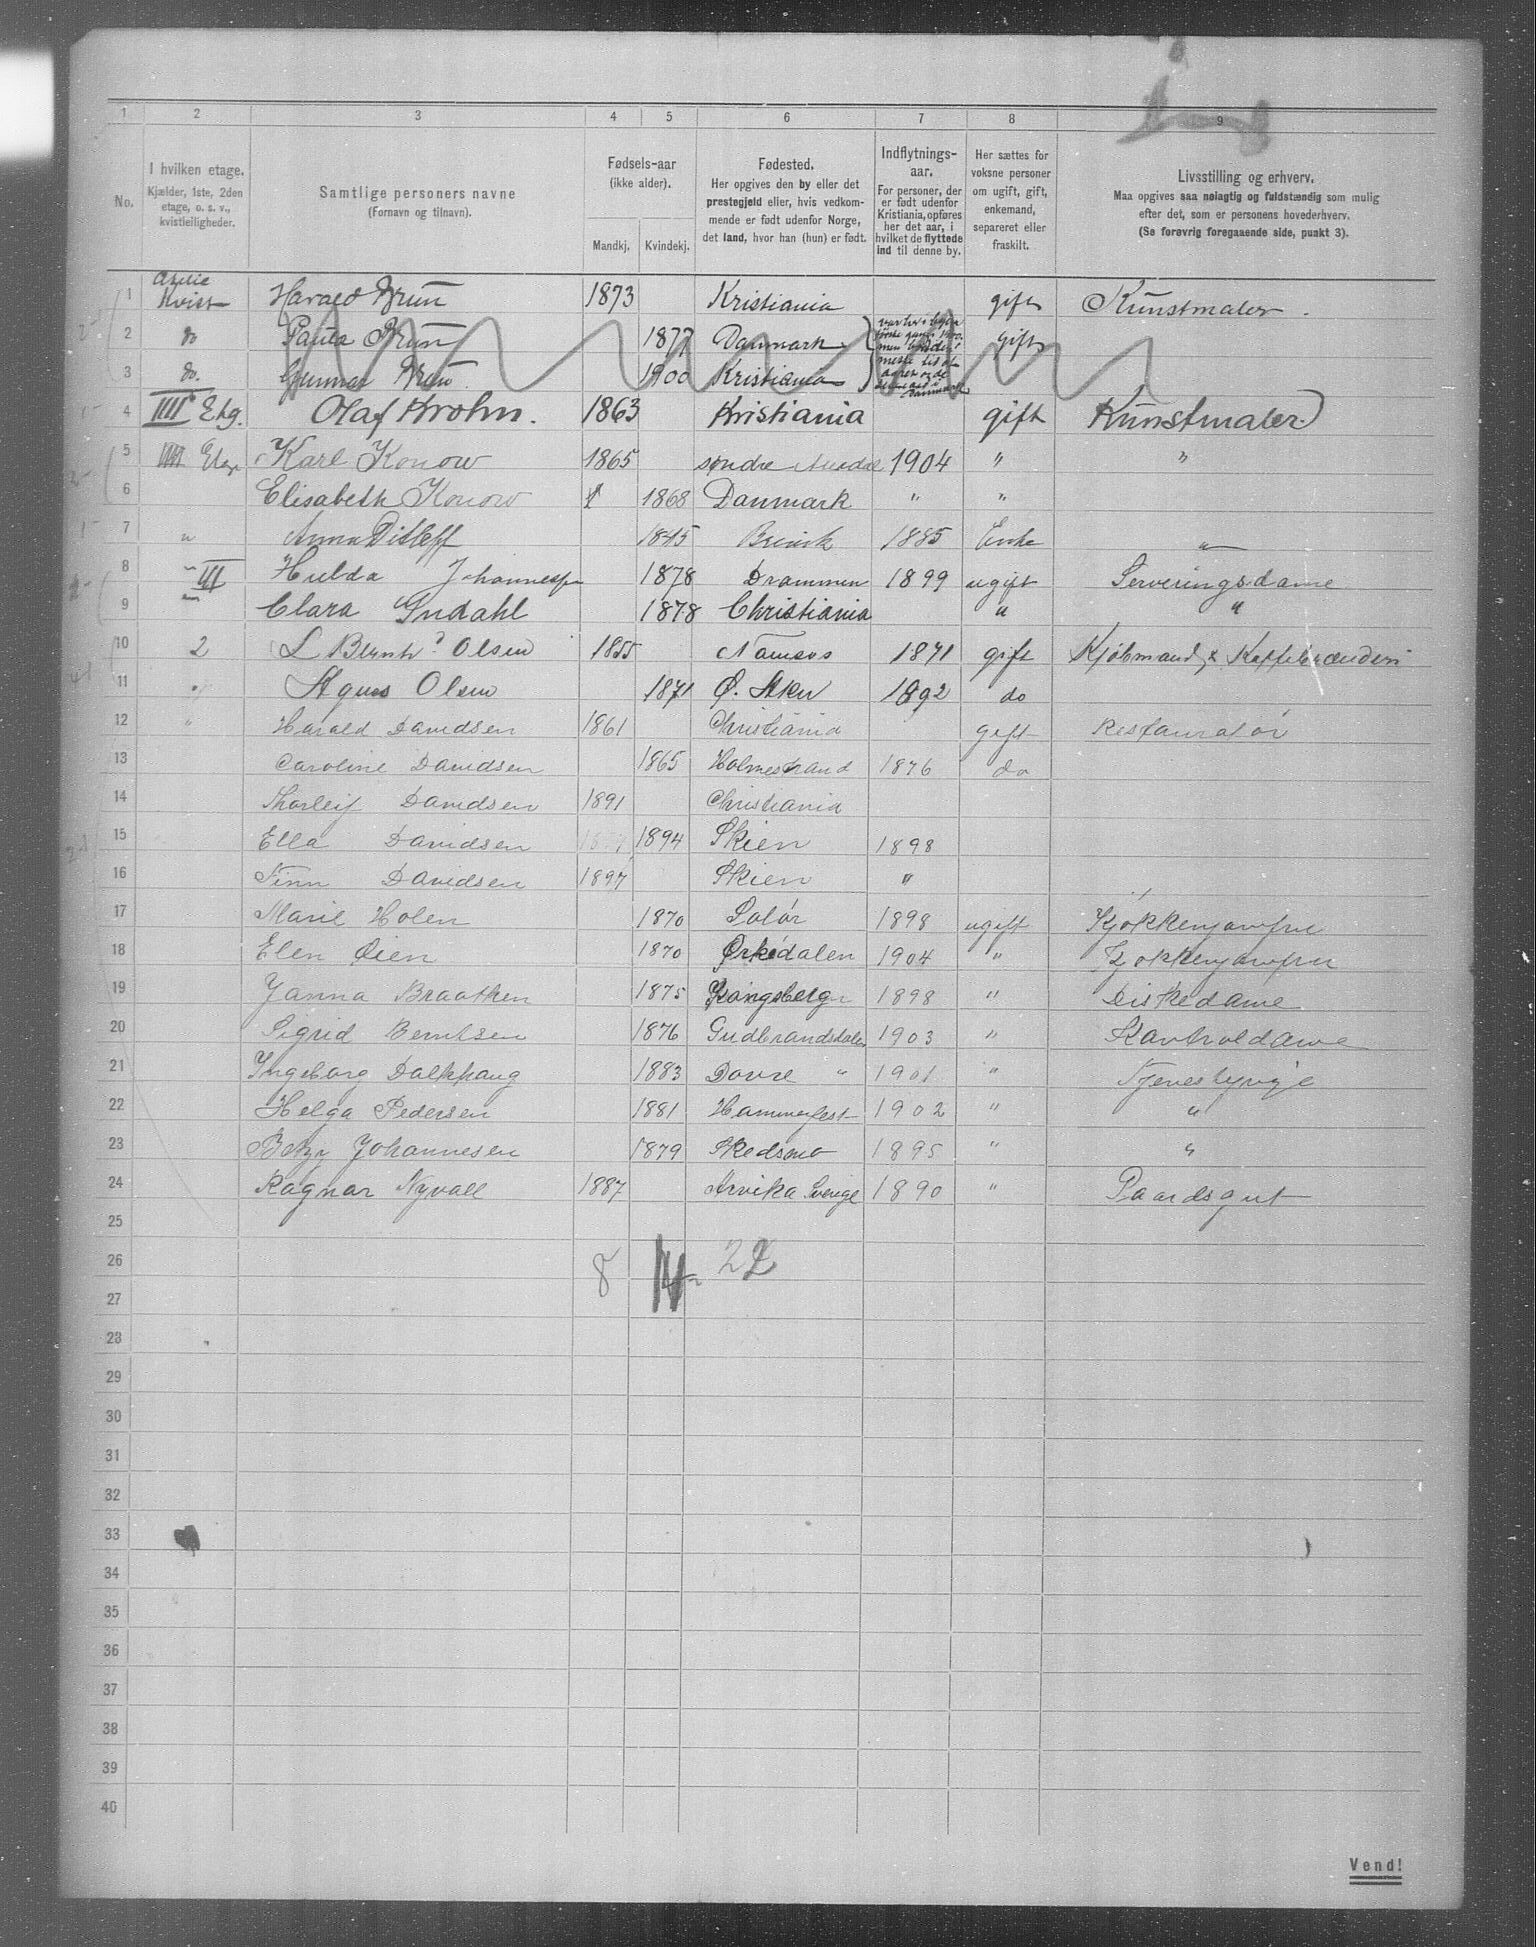 1 2 3 4 5 6 7 8 9
No.
I hvilken etage.
Kjælder, 1ste, 2den
etage, o. s. v.,
kvistleiligheder.
Samtlige personers navne
(Fornavn og tilnavn).
Fødsels-aar
(ikke alder).
Mandkj. Kvindekj.
Fødested.
Her opgives den by eller det
prestegjeld eller, hvis vedkom-
mende er født udenfor Norge,
det land, hvor han (hun) er født.
Indflytnings-
aar.
For personer, der
er født udenfor
Kristiania, opføres
her det aar, i
hvilket de flyttede
ind til denne by.
Her sættes for
voksne personer
om ugift, gift,
enkemand,
separeret eller
fraskilt.
Livsstilling og erhverv.
Maa opgives saa nøiagtig og fuldstændig som mulig
efter det, som er personens hovederhverv.
(Se forøvrig foregaaende side, punkt 3).
1 Kvist Harald Brun 1873 Kristiania gift Kunstmaler.
2 do Paula Brun 1877 Danmark gift
3 do. Gunnar Brun. 1900 Kristiania
4 IIII Etg. Olaf Krohn. 1863 Kristiania gift Kunstmaler
5 IIII Etg. Karl Konow 1865 søndre 1904 " "
6 Elisabeth Konow 1868 Danmark " "
7 " Anna Ditleff 1845 1885 Enke "
8 III Hulda Johannesen 1878 Drammen 1899 ugift Serveringsdame
9 Clara Indahl 1878 Christiania " "
10 2 L Bernh? Olsen 1855 Namsos 1871 gift Kjøbmand & Kaffebrænderi
11 " Agnes Olsen 1871 Ø. Aker 1892 do
12 " Harald Davidsen 1861 Christiania gift Restauratør
13 Caroline Davidsen 1865 Holmestrand 1876 do
14 Thorleif Davidsen 1891 Christiania
15 Ella Davidsen 1894 Skien 1898
16 Finn Davidsen 1897 Skien "
17 Marie Holen 1870 Solør 1898 ugift Kjøkkenjomfru
18 Elen Øien 1870 Ørkedalen 1904 " Kjøkkenjomfru
19 Janna Braathen 1875 Kongsberg 1898 " Diskedame
20 Sigrid Berntsen 1876 Gudbrandsdalen 1903 " Kontroldame
21 Ingeborg Dalkhaug 1883 Dovre " 1901 " Tjenestepige
22 Helga Pedersen 1881 Hammerfest 1902 " "
23 Betzy Johannesen 1879 Skedsmo 1895 " "
24 Ragnar Nyvall 1887 Arvika Sverige 1890 " Gaardsgut
25
26 8 14 22
27
28
29
30
31
32
33
34
35
36
37
38
39
40
Vend!